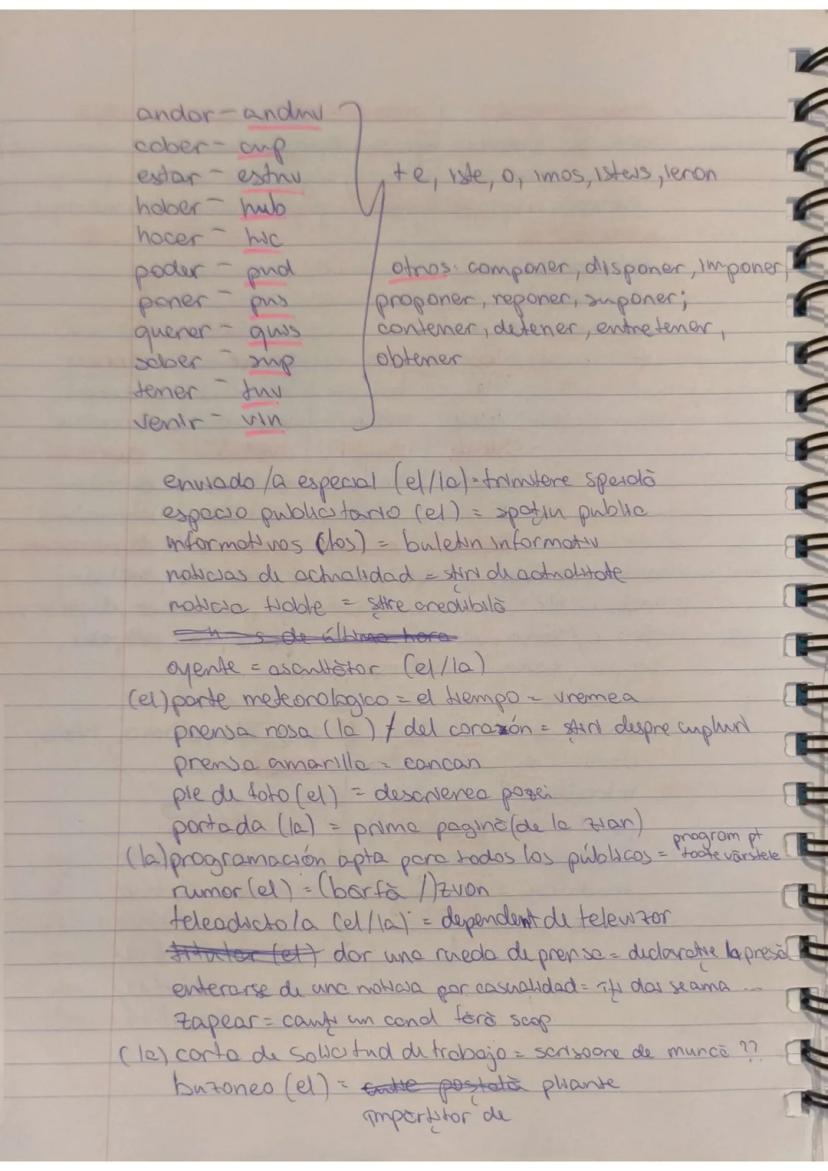 andar - anduv
caber - cup
estar - estuv
haber - hub
hacer - hic
poder - pud
poner - pus
querer - quis
saber - sup
tener - tuv
venir - vin
+ e, iste, o, imos, isteis, ieron
otros: componer, disponer, imponer,
proponer, reponer, suponer;
contener, detener, entretener,
obtener
enviado/a especial (el/la) = trimitere specială
espacio publicitario (el) = spațiu public
informativos (los) = buletin informativ
noticias de actualidad = știri de actualitate
noticia fiable = știre credibilă
de última hora
oyente = ascultător (el/la)
(el) parte meteorologico = el tiempo = vremea
prensa rosa (la) / del corazón = știri despre cupluri
prensa amarilla = cancan
pie de foto (el) = descrierea pozei
portada (la) = prima pagină (de la ziar)
(la) programación apta para todos los públicos = program pt toate vârstele
rumor (el) = (bârfă /) zvon
teleadicto/a (el/la) = dependent de televizor
titular (el) dar una rueda de prensa = declarație la presă
enterarse de una noticia por casualidad = îți dai seama ...
zapear = cauți un canal fără scop
(la) carta de solicitud de trabajo = scrisoare de muncă ??
buzoneo (el) = cutie poștală pliante
împărțitor de